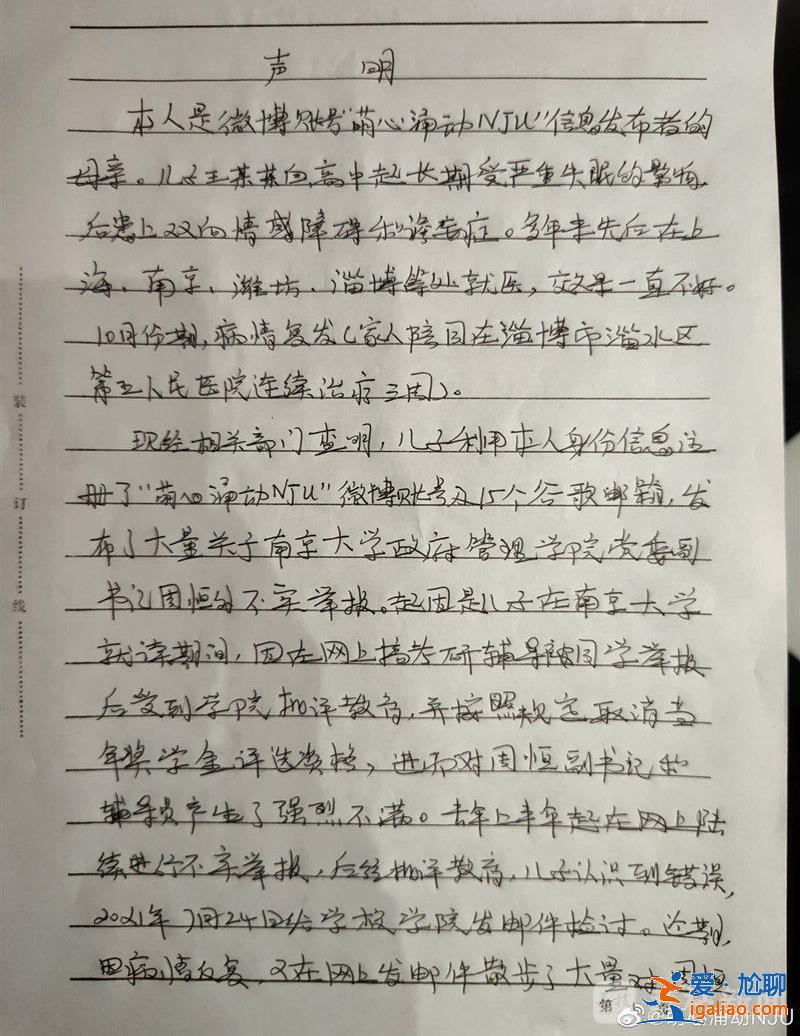 声 明
本人是微博账号"萌心涌动NJU"信息发布者的
母亲。儿子王某某自高中起长期受严重失眠的影响,
后患上双向情感障碍和渗梦症。多年来先后在上
海、南京、潍坊、淄博等处就医,效果一直不好。
10月份期,病情复发(家人陪同在淄博市淄水区
第五人民医院连续治疗三周)。
现经相关部门查明,儿子利用本人身份信息注
册了"萌心涌动NJU"微博账号及15个谷歌邮箱,发
布了大量关于南京大学政府管理学院党委副
书记周恒的不实举报。起因是儿子在南京大学
就读期间,因在网上搞考研辅导被同学举报
后受到学院批评教育,并按照规定取消当
年奖学金评选资格,进而对周恒副书记和
辅导员产生了强烈不满。去年上半年起在网上陆
续进行不实举报,后经批评教育,儿子认识到错误,
2021年7月24日给学校学院发邮件检讨。近期,
因病情反复,又在网上发邮件散步了大量对周恒
装
订
线
第 页
爱·尬聊
igaliao.com
涌动NJU